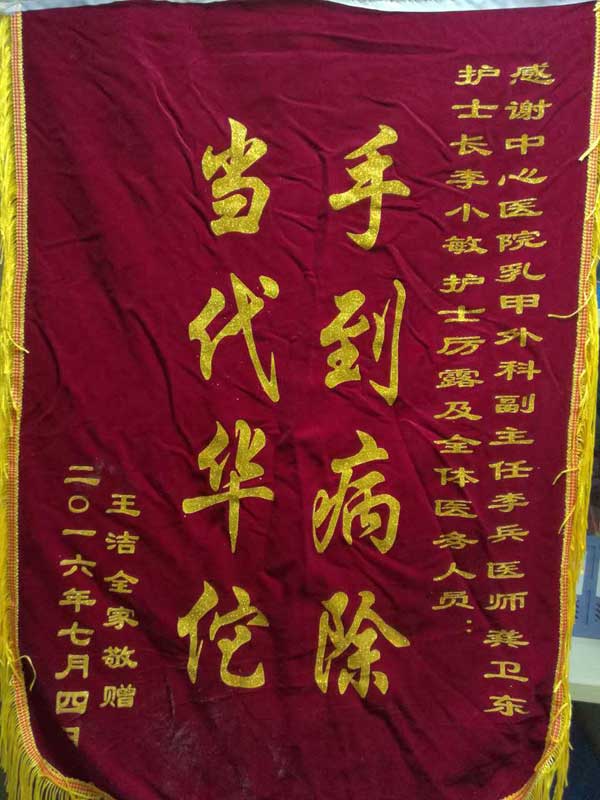 感谢中心医院乳甲外科副主任李兵医师龚卫东
护士长李小敏护士厉露及全体医务人员：
手到病除
当代华佗
王洁全家敬赠
二〇一六年七月四日